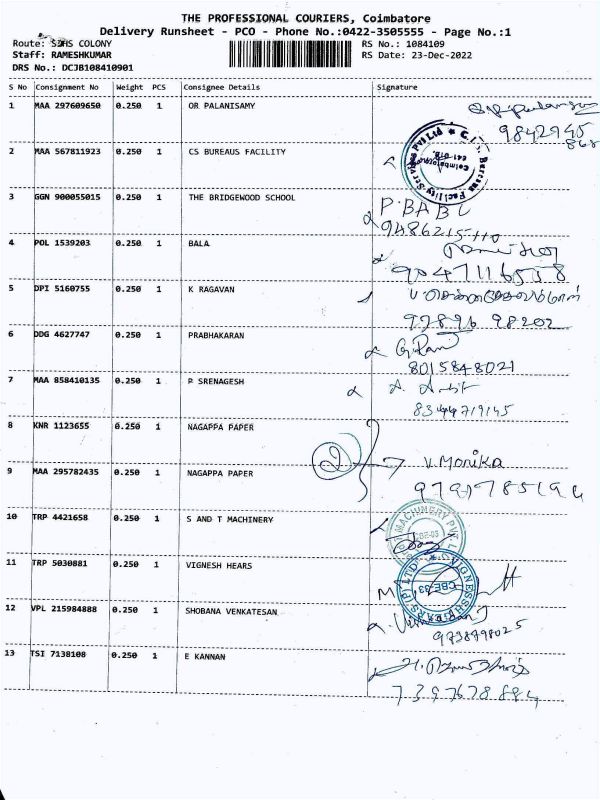 THE PROFESSIONAL COURIERS, Coimbatore
Delivery Runsheet - PCO - Phone No.:0422-3505555 - Page No.:1
Route: COLONY RS No.: 1084109
Staff: RAMESHKUMAR RS Date: 23-Dec-2022
DRS No.: DCJB108410901
S No Consignment No Weight PCS Consignee Details Signature
1 MAA 297609650 0.250 1 OR PALANISAMY
9842945
868
2 MAA 567811923 0.250 1 CS BUREAUS FACILITY
3 GGN 900055015 0.250 1 THE BRIDGEWOOD SCHOOL
P.BABU
4 POL 1539203 0.250 1 BALA
9047116558
5 DPI 5160755 0.250 1 K RAGAVAN
97896 98202
6 DDG 4627747 0.250 1 PRABHAKARAN
8015848021
7 MAA 858410135 0.250 1 P SRENAGESH
8344719145
8 KNR 1123655 0.250 1 NAGAPPA PAPER
V.Monika
9 MAA 295782435 0.250 1 NAGAPPA PAPER
10 TRP 4421658 0.250 1 S AND T MACHINERY
11 TRP 5030881 0.250 1 VIGNESH HEARS
CBE-33
12 VPL 215984888 0.250 1 SHOBANA VENKATESAN
13 TSI 7138108 0.250 1 E KANNAN
7397678894